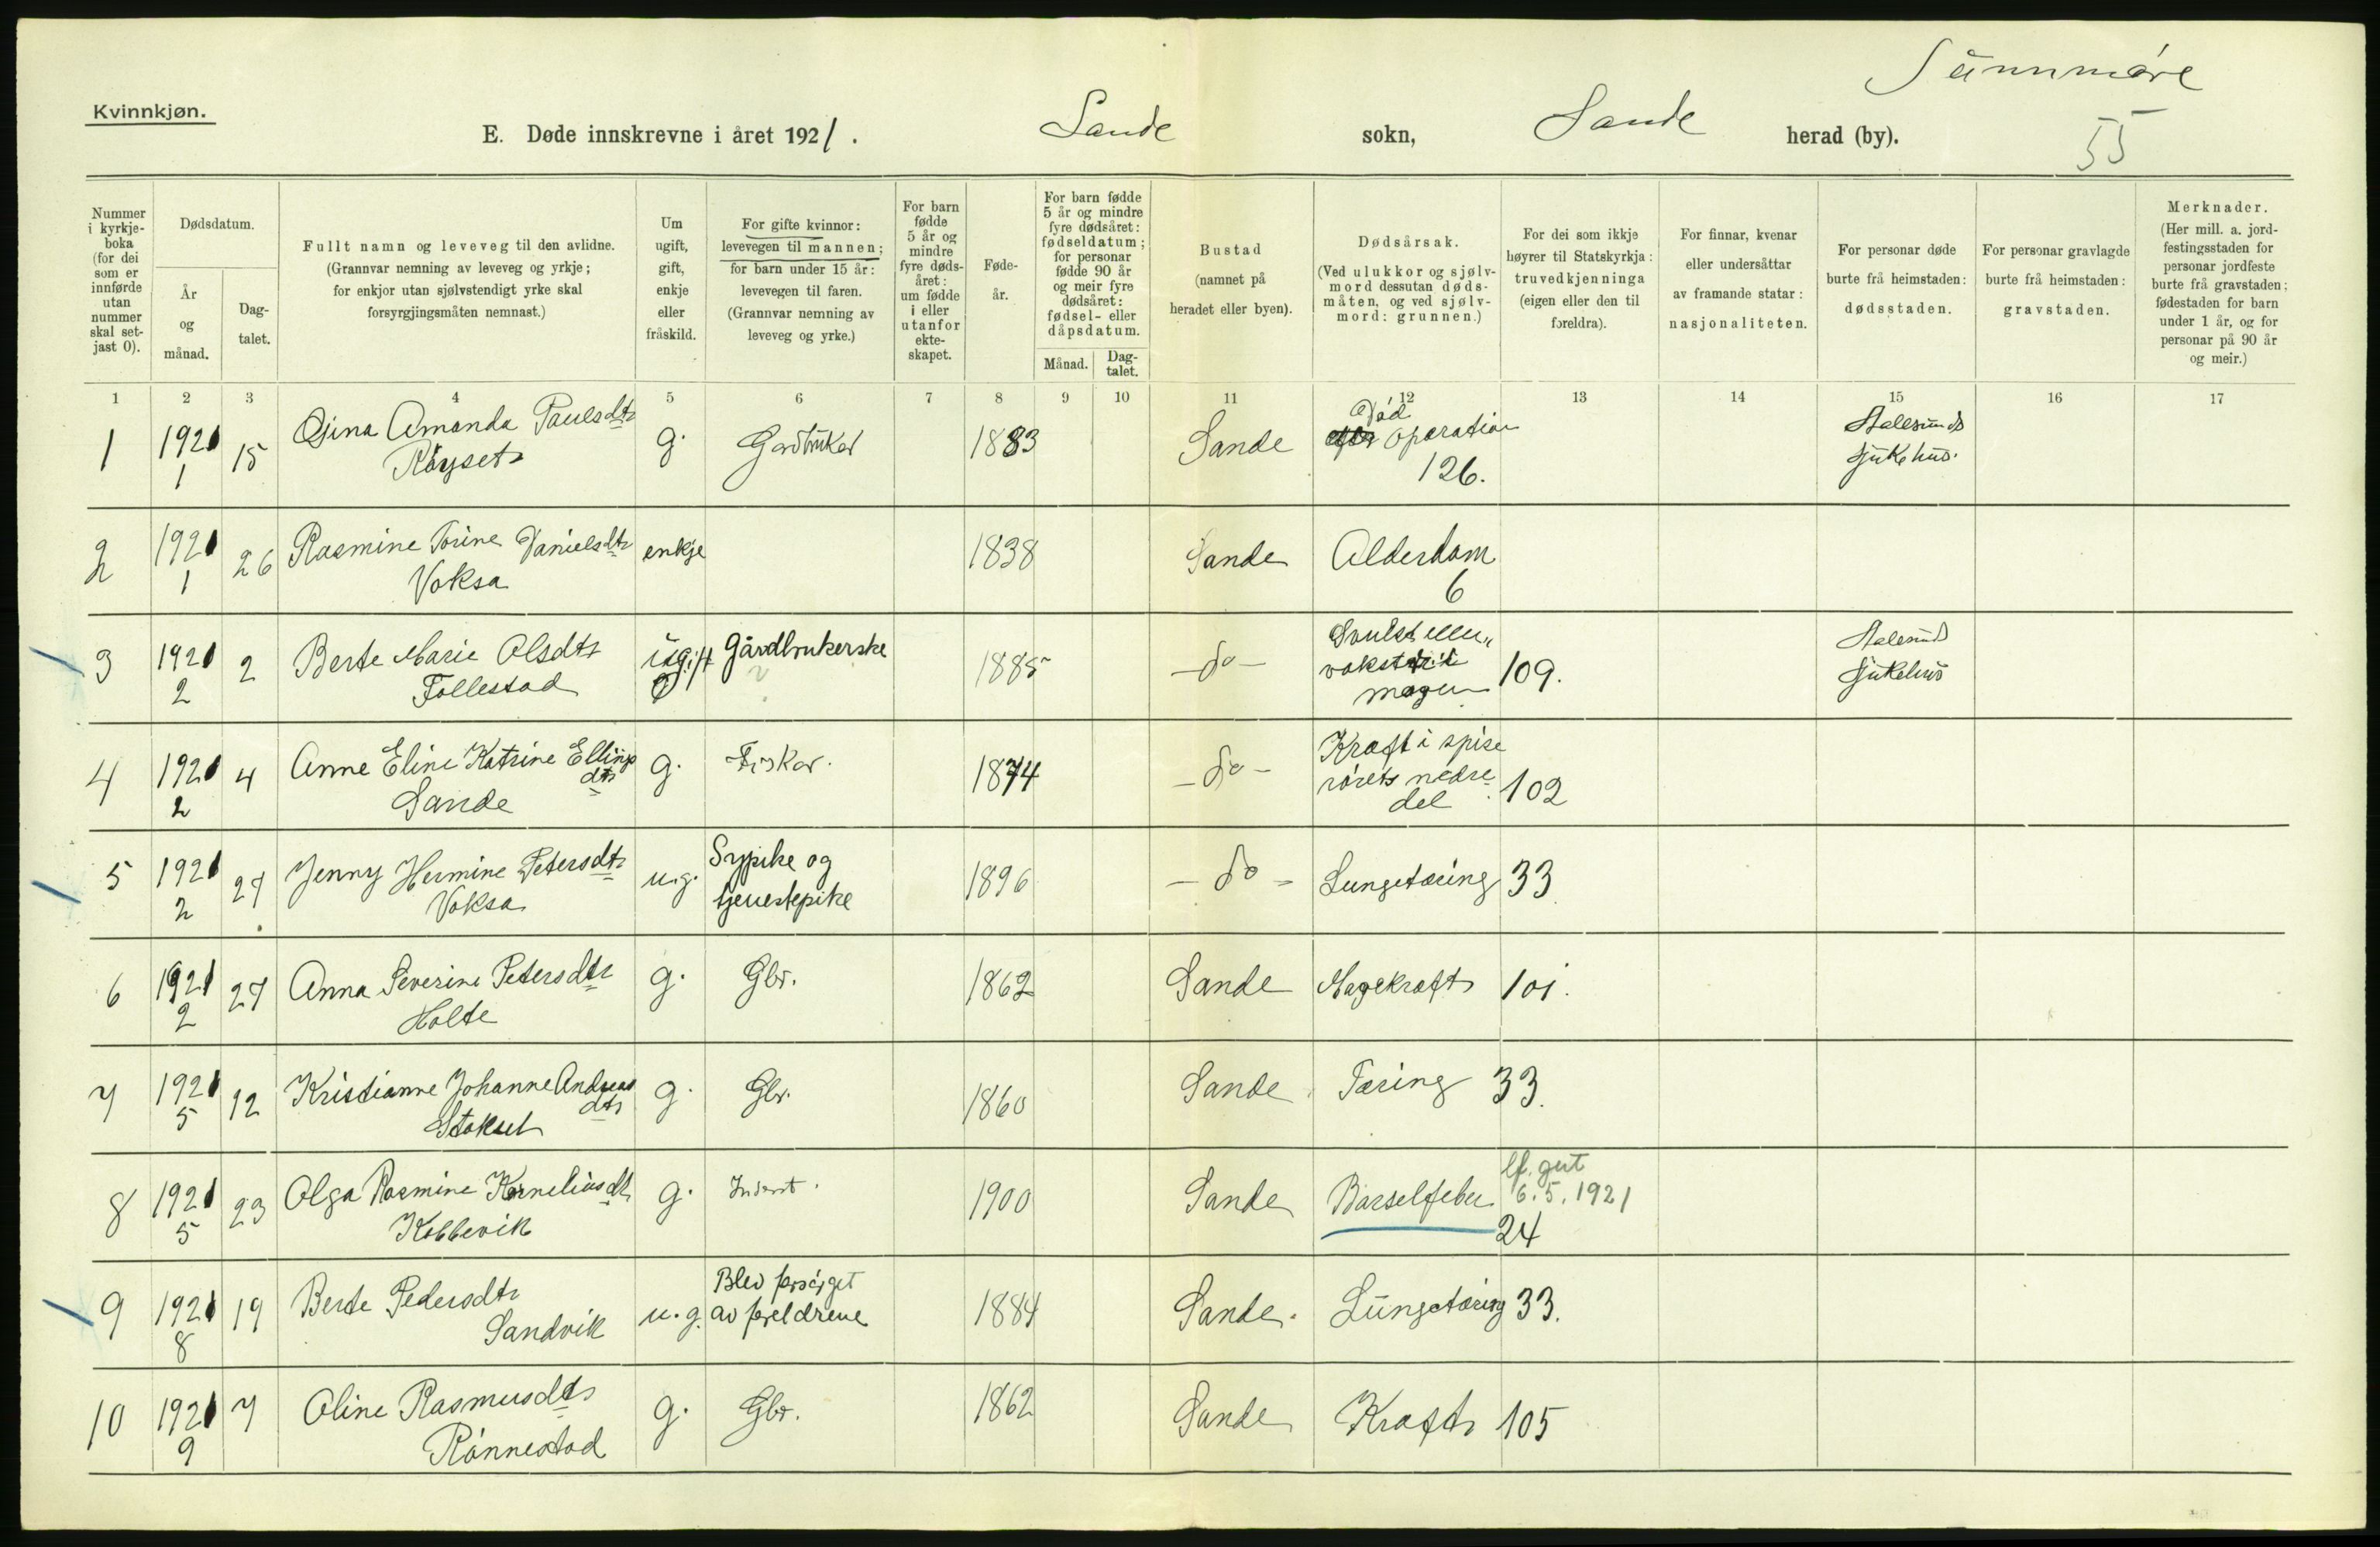 Sünnmøre
Kvinnkjøn.
E. Døde innskrevne i året 1921. Sande sokn, Sande herad (by).
55
Nummer
i kyrkje-
boka
(for dei
som er
innførde
utan
nummer
skal set-
jast 0).
Dødsdatum.
År
og
månad.
Dag-
talet.
Fullt namn og leveveg til den avlidne.
(Grannvar nemning av leveveg og yrkje;
for enkjor utan sjølvstendigt yrke skal
forsyrgjingsmåten nemnast.)
Um
ugift,
gift,
enkje
eller
fråskild.
For gifte kvinnor:
levevegen til mannen;
for barn under 15 år:
levevegen til faren.
(Grannvar nemning av
leveveg og yrke.)
For barn
fødde
5 år og
mindre
fyre døds-
året:
um fødde
i eller
utanfor
ekte-
skapet.
Føde-
år.
For barn fødde
5 år og mindre
fyre dødsåret:
fødseldatum;
for personar
fødde 90 år
og meir fyre
dødsåret:
fødsel- eller
dåpsdatum.
Månad.
Dag-
talet.
Bustad
(namnet på
heradet eller byen).
Dødsårsak.
(Ved ulukkor og sjølv-
mord dessutan døds-
måten, og ved sjølv-
mord: grunnen.)
For dei som ikkje
høyrer til Statskyrkja:
truvedkjenninga
(eigen eller den til
foreldra).
For finnar, kvenar
eller undersåttar
av framande statar:
nasjonaliteten.
For personar døde
burte frå heimstaden:
dødsstaden.
For personar gravlagde
burte frå heimstaden:
gravstaden.
Merknader.
(Her mill. a. jord-
festingsstaden for
personar jordfeste
burte frå gravstaden;
fødestaden for barn
under 1 år, og for
personar på 90 år
og meir.)
1 2 3 4 5 6 7 8 9 10 11 12 13 14 15 16 17
1 1921 15 Gina Amanda Paulsdtr g. Gardbruker 1883 Sande Død operation Aalesunds
1 Røyset 126. sjukehus.
2 1921 26 Rasmine Torine Danielsdtr enkje 1838 Sande Alderdom
1 Voksa 6
3 1921 2 Berte Marie Olsdtr ugift Gårdbrukerske 1885 -do- Svulst
2 Follestad vokster i
magen 109.
Aalesunds
sjukehus
4 1921 4 Anne Eline Katrine Ellings g. Fisker. 1874 -do- Kræft i spise
2 dtr
Sande rørets nedre
del 102
5 1921 27 Jenny Hermine Petersdtr u.g. Sypike og 1896 -do- Lungetæring 33
2 Voksa tjenestepike
6 1921 27 Anna Severine Petersdtr g. Gbr. 1862 Sande Magekræft 101.
2 Holte
7 1921 12 Kristianne Johanne Andreas g. Gbr. 1860 Sande Tæring 33.
5 dtr
Stokset
8 1921 23 Olga Rasmine Korneliusdtr g. Inderst. 1900 Sande Barselfeber lf. gut
6.5.1921
5 Kobbevik 24
9 1921 19 Berte Pedersdtr u.g. Blev forsørget 1884 Sande. Lungetæring 33.
8 Sandvik av foreldrene
10 1921 7 Oline Rasmusdtr g. Gbr. 1862 Sande Kræft 105
9 Rønnestad